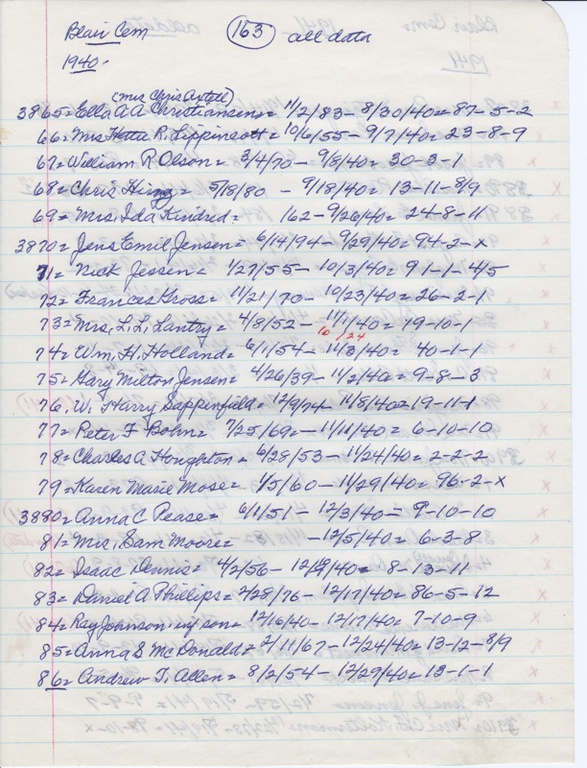 Blair Cem 163 all data
1940.
(Mrs Chris Axtell)
3865= Ella A A Christiansen= 11/2/83 - 8/30/40= 87-5-2
66= Mrs Hattie R. Lippincott= 10/6/55 - 9/7/40= 23-8-9
67= William R Olson= 3/4/70 - 9/8/40= 30-3-1
68= Chris = 5/8/80 - 9/18/40= 13-11-8/9
69= Mrs. Ida Kindred= 162 - 9/26/40= 24-8-11
3870= Jens Emil Jensen= 6/14/94 - 9/29/40= 94-2-x
71= Nick Jessen= 1/27/55 - 10/3/40= 91-1-4/5
72= Frances Gross= 11/21/70 - 10/23/40= 26-2-1
73= Mrs. L. L. Lantry= 4/8/52 - 11/1/40= 19-10-1
10/24
74= Wm. H. Holland= 6/1/54 - 11/3/40= 40-1-1
75= Gary Milton Jensen= 4/26/39 - 11/2/40= 9-8-3
76. W. Harry Sappenfield= 12/9/74 - 11/8/40= 19-11-1
77= Peter F Bohn= 7/25/69= - 11/11/40= 6-10-10
78= Charles A Houghton= 6/28/53 - 11/24/40= 2-2-2
79= Karen Marie Mose= 1/5/60 - 11/29/40= 96-2-x
3880= Anna C Pease= 6/1/51 - 12/3/40= 9-10-10
81= Mrs. Sam Moore= - 12/5/40= 6-3-8
82= Isaac Dennis= 4/2/56 - = 8-13-11
83= Daniel A Phillips= 2/28/76 - 12/17/40= 86-5-12
84= Ray Johnson inf son= 12/16/40 - 12/17/40= 7-10-9
85= Anna S McDonald= 2/11/67 - 12/24/40= 13-12-8/9
86= Andrew T. Allen= 8/2/54 - 12/29/40= 13-1-1